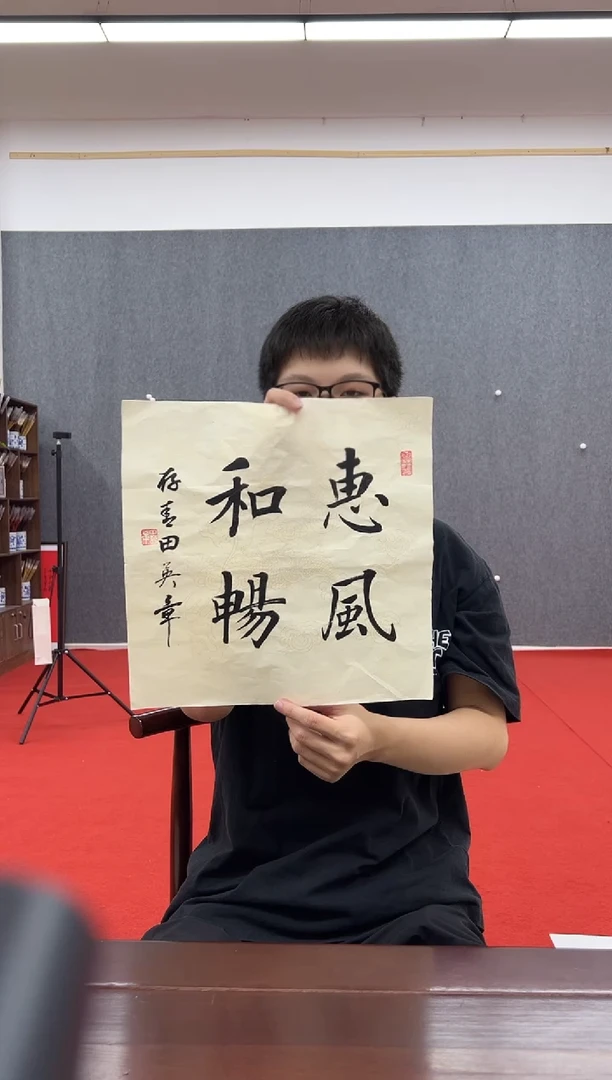 惠風
和暢
存青田英章